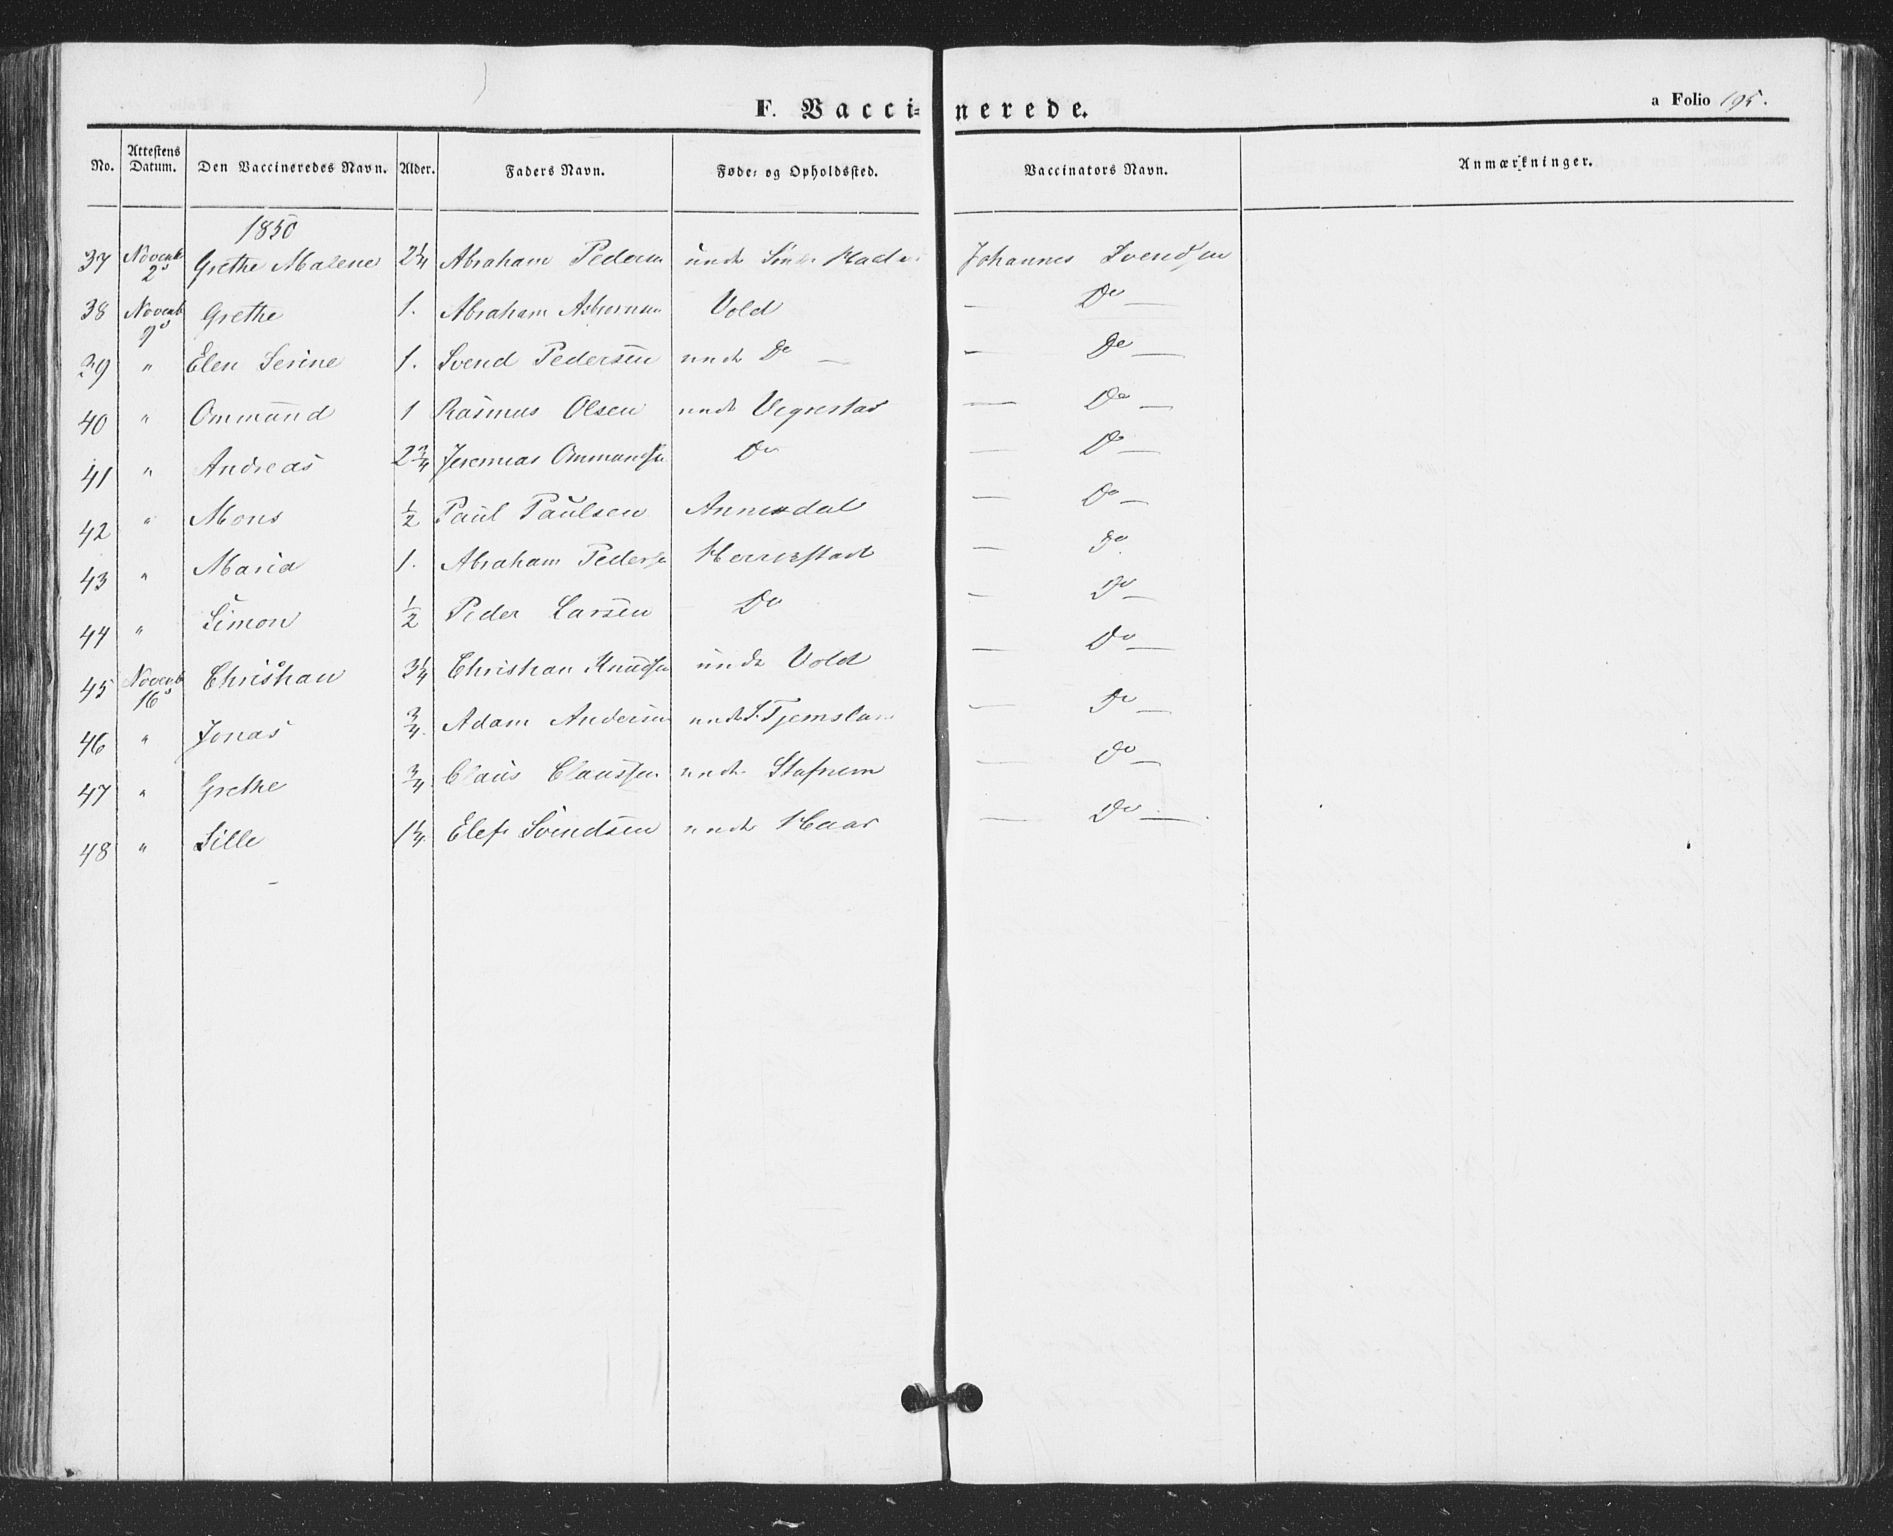 F. Vaccinerede.
a Folio 195.
No. Attestens Datum. Den Vaccineredes Navn. Alder. Faders Navn. Føde- og Opholdssted. Vaccinators Navn. Anmærkninger.
1850
37 Novemb 2d Grethe Malene 2¼ Abraham Pedersen unde Johannes Svendsen
38 Novemb 9d Grethe 1. Abraham Asbiørnsen Vold — Do —
39 " Elen Serine 1. Svend Pedersen unde Do — — Do —
40 " Ommund 1 Rasmus Olsen unde Vigrestad — Do —
41 " Andreas 2¾ Jeremias Ommundsen Do — Do —
42 " Mons ½ Paul Paulsen Annisdal — Do —
43 " Maria 1. Abraham Pedersen Herrestad — Do
44 " Simon ½ Peder Larsen Do — Do —
45 Novemb 16d Christian 3¼ Christian Knudsen unde Vold — Do —
46 " Jonas ¾. Adam Andersen unde S. Tjemsland — Do —
47 " Grethe ¾ Claus Claussen unde Stafnem — Do —
48 " Sille 1¼ Elef Svendsen unde Haar — Do —